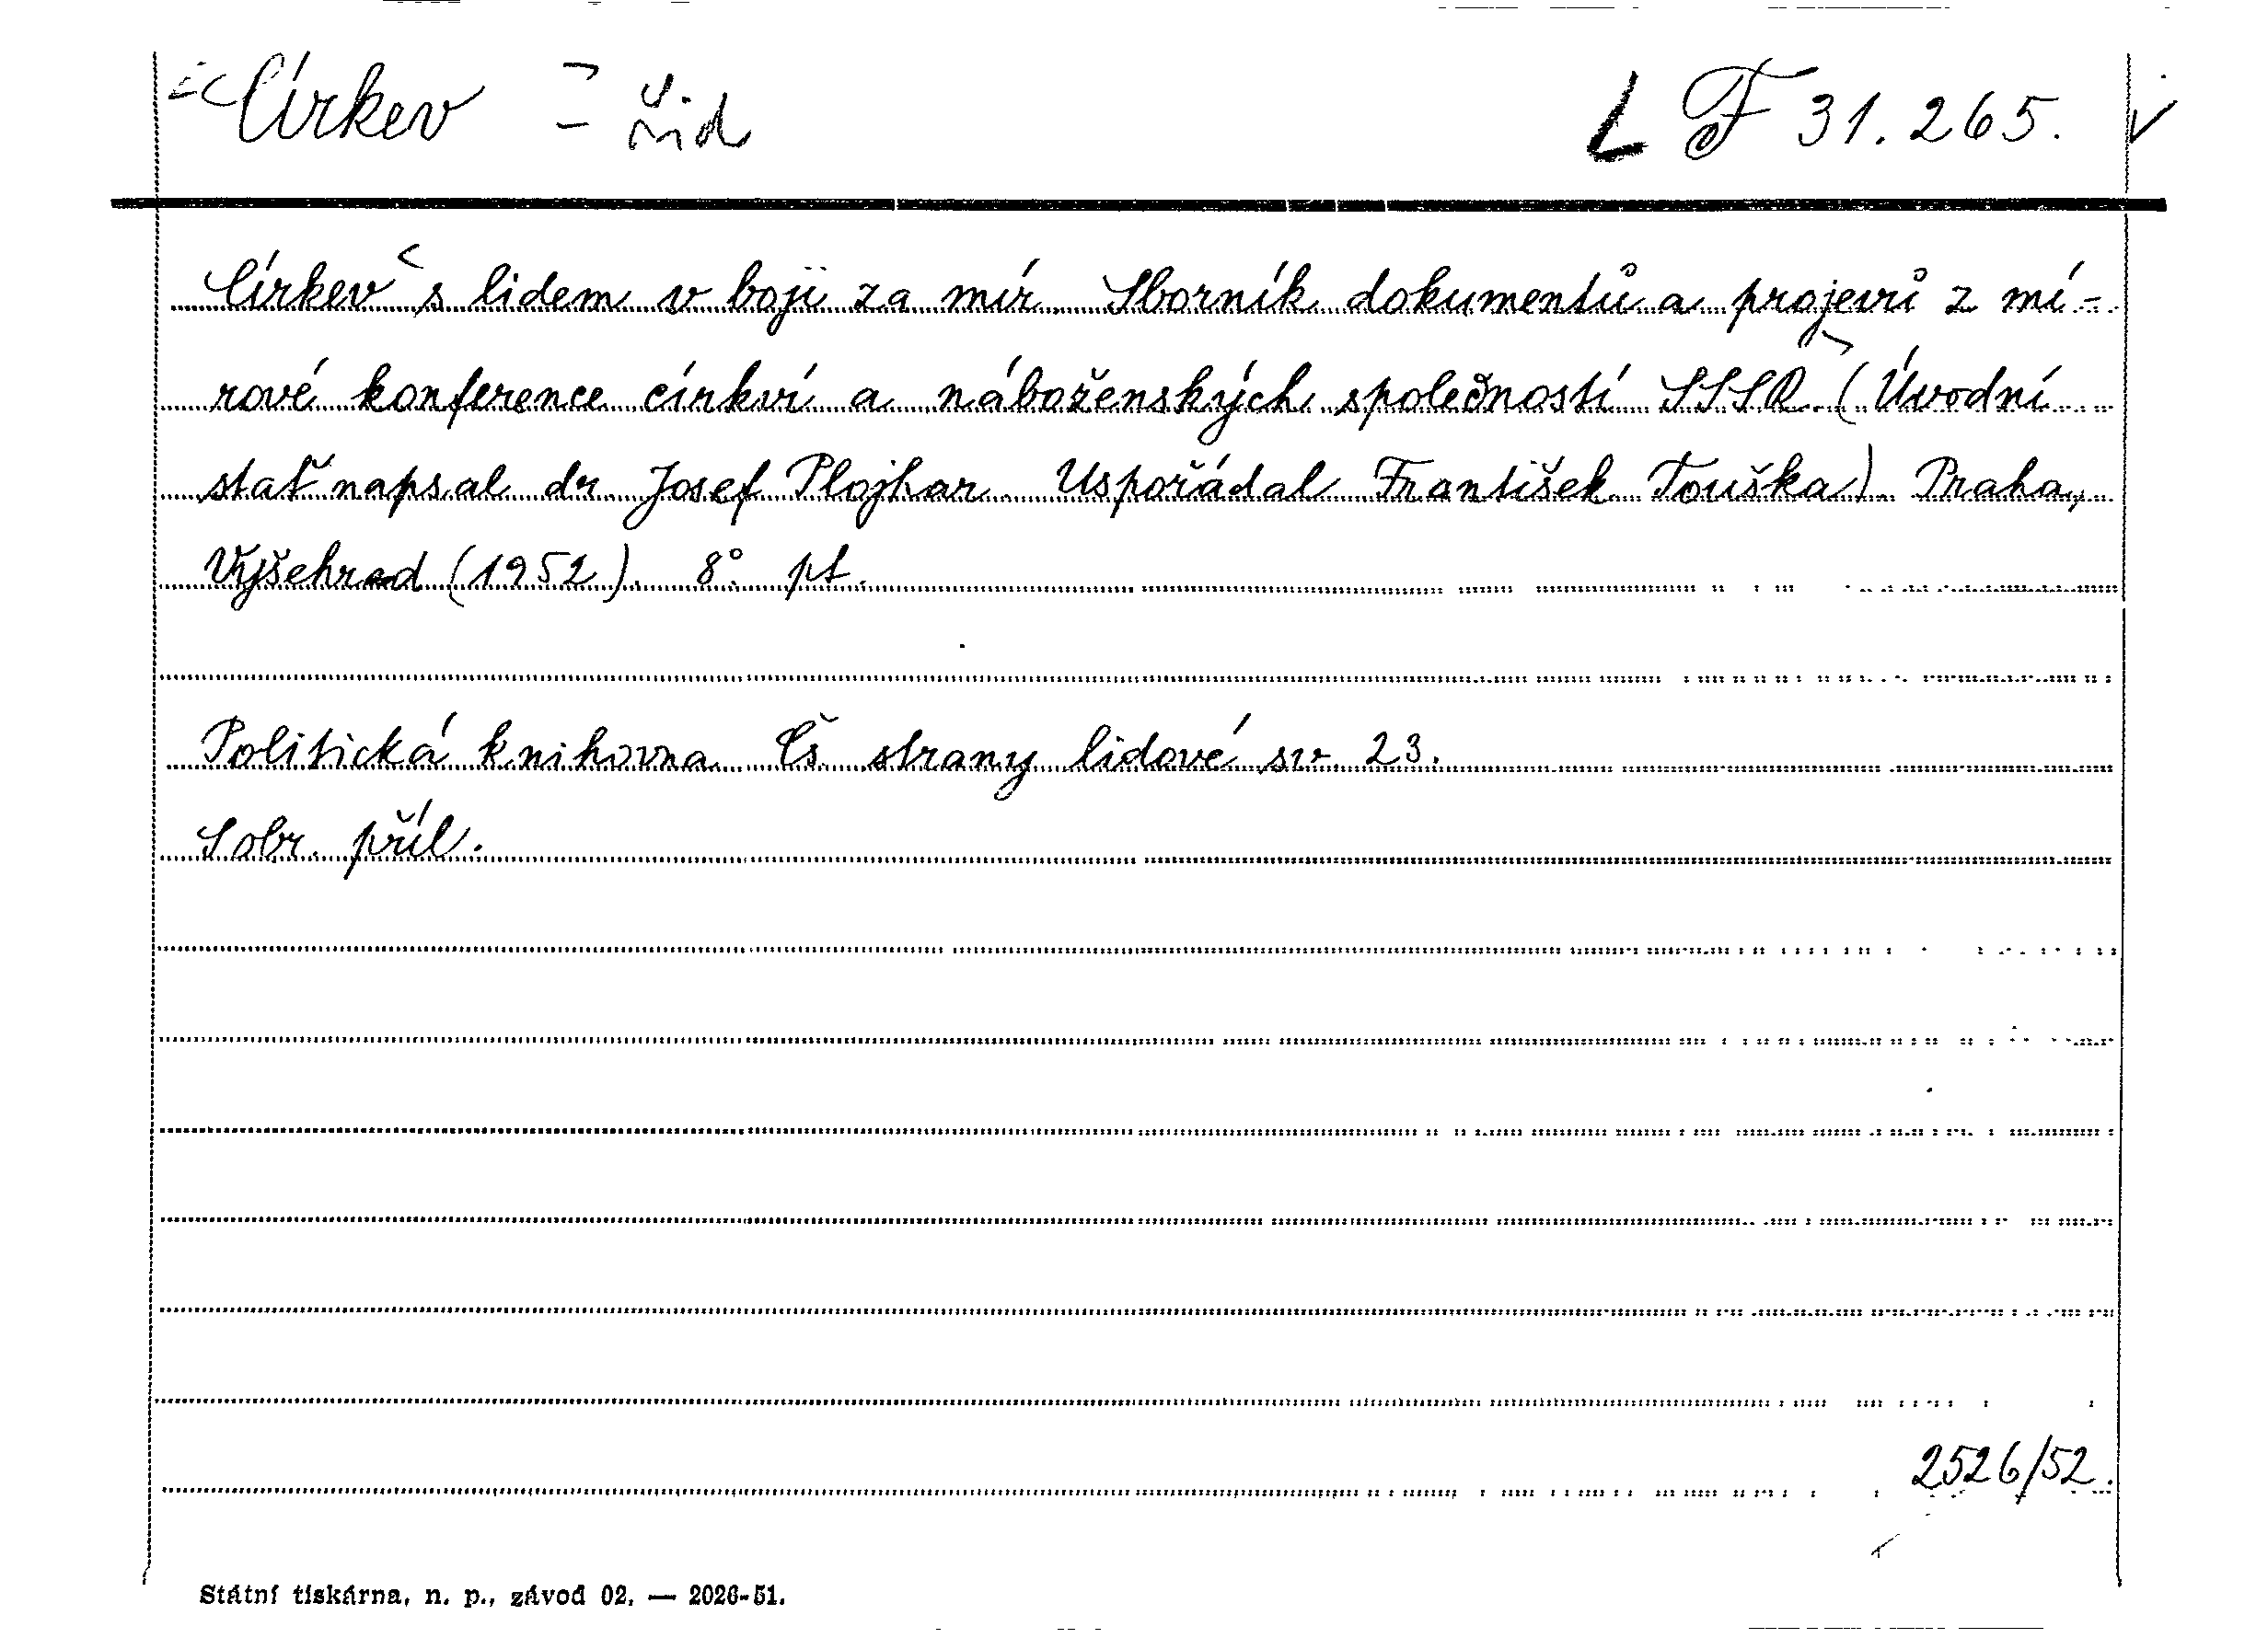 Církev L F 31.265.
Církev s lidem v boji za mír. Sborník dokumentů a projevů z mí-
rové konference církví a náboženských společností SSSR. (Úvodní
stať napsal dr. Josef Plojhar. Uspořádal František Touška). Praha,
Vyšehrad (1952). 8°. pt.
Politická knihovna Čs. strany lidové sv. 23.
S obr. příl.
2526/52.
Státní tiskárna, n. p., závod 02. — 2026-51.